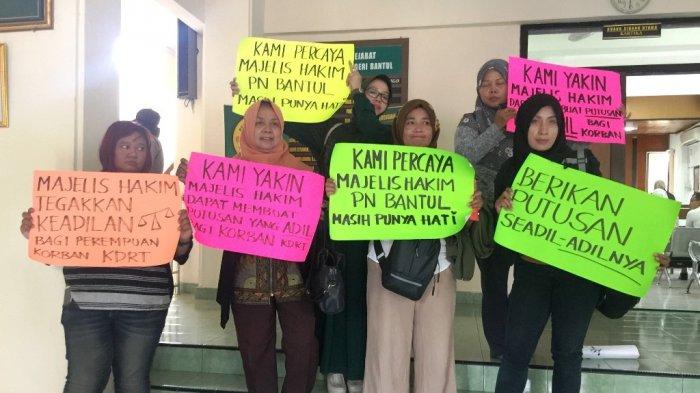 KAMI PERCAYA
MAJELIS HAKIM
PN BANTUL
MASIH PUNYA HATI
JABAT
ERI BANTUL
RUANG SIDANG UTAMA
KARTIKA
KAMI YAKIN
MAJELIS HAKIM
DAPAT MEMBUAT PUTUSAN
YANG ADIL BAGI
KORBAN
MAJELIS HAKIM
TEGAKKAN
KEADILAN
BAGI PEREMPUAN
KORBAN KDRT
KAMI YAKIN
MAJELIS HAKIM
DAPAT MEMBUAT
PUTUSAN YANG ADIL
BAGI KORBAN KDRT
KAMI PERCAYA
MAJELIS HAKIM
PN BANTUL
MASIH PUNYA HATI
BERIKAN
PUTUSAN
SEADIL-ADILNYA